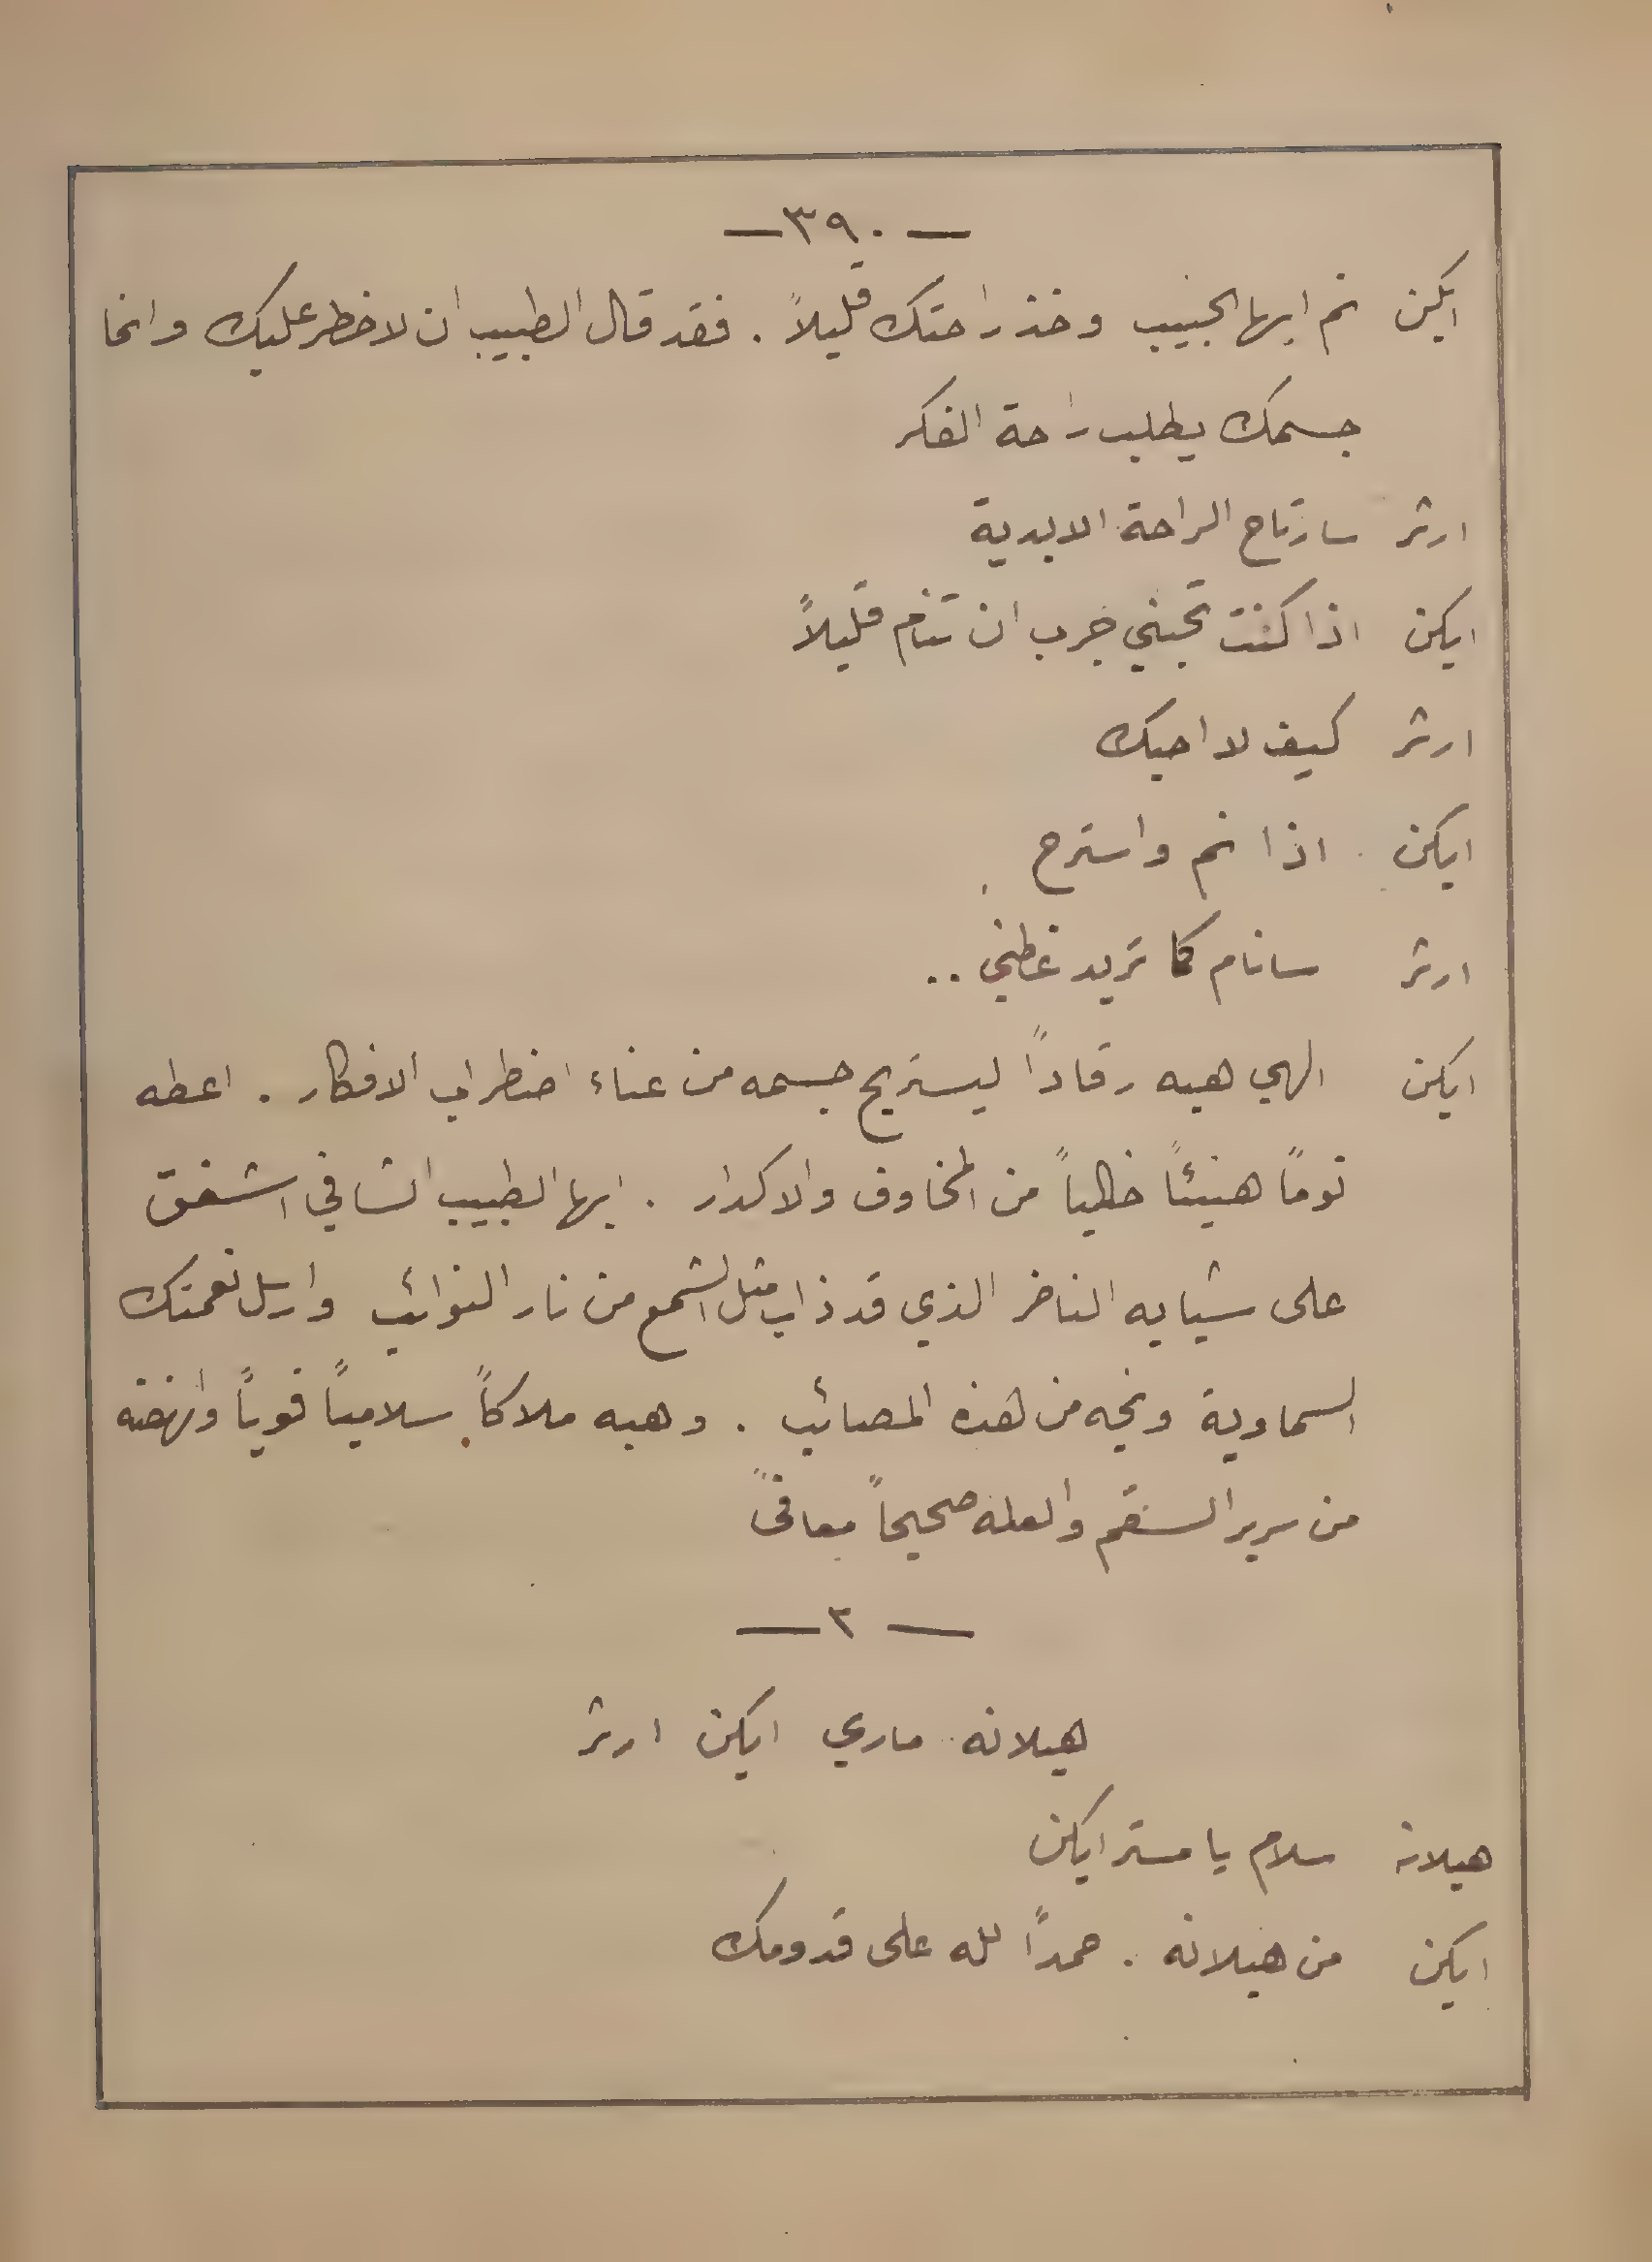 — ٣٩٠ —
ايكن نم ايها الحبيب وخذ راحتك قليلاً . فقد قال الطبيب ان لا خطر عليك وانما
جسمك يطلب راحة الفكر
ارثر سارتاح الراحة الابدية
ايكن اذا كنت تحبني جرب ان تنام قليلاً
ارثر كيف لا احبك
ايكن اذا نم واسترح
ارثر سانام كما تريد غطني ..
ايكن الهي هبه رقاداً ليستريح جسمه من عناء اضطراب الافكار . اعطه
نوماً هنيئاً خالياً من المخاوف والاكدار . ايها الطبيب الشافي اشفق
على شبابه الناضر الذي قد ذاب مثل الشمع من نار النوائب وارسل نعمتك
السماوية ونجه من هذه المصائب . وهبه ملاكاً سلامياً قوياً وانهضه
من سرير السقم والعله صحيحاً معافىً
— ٣ —
هيلانه ماري ايكن ارثر
هيلانه سلام يا مستر ايكن
ايكن من هيلانه . حمداً لله على قدومك